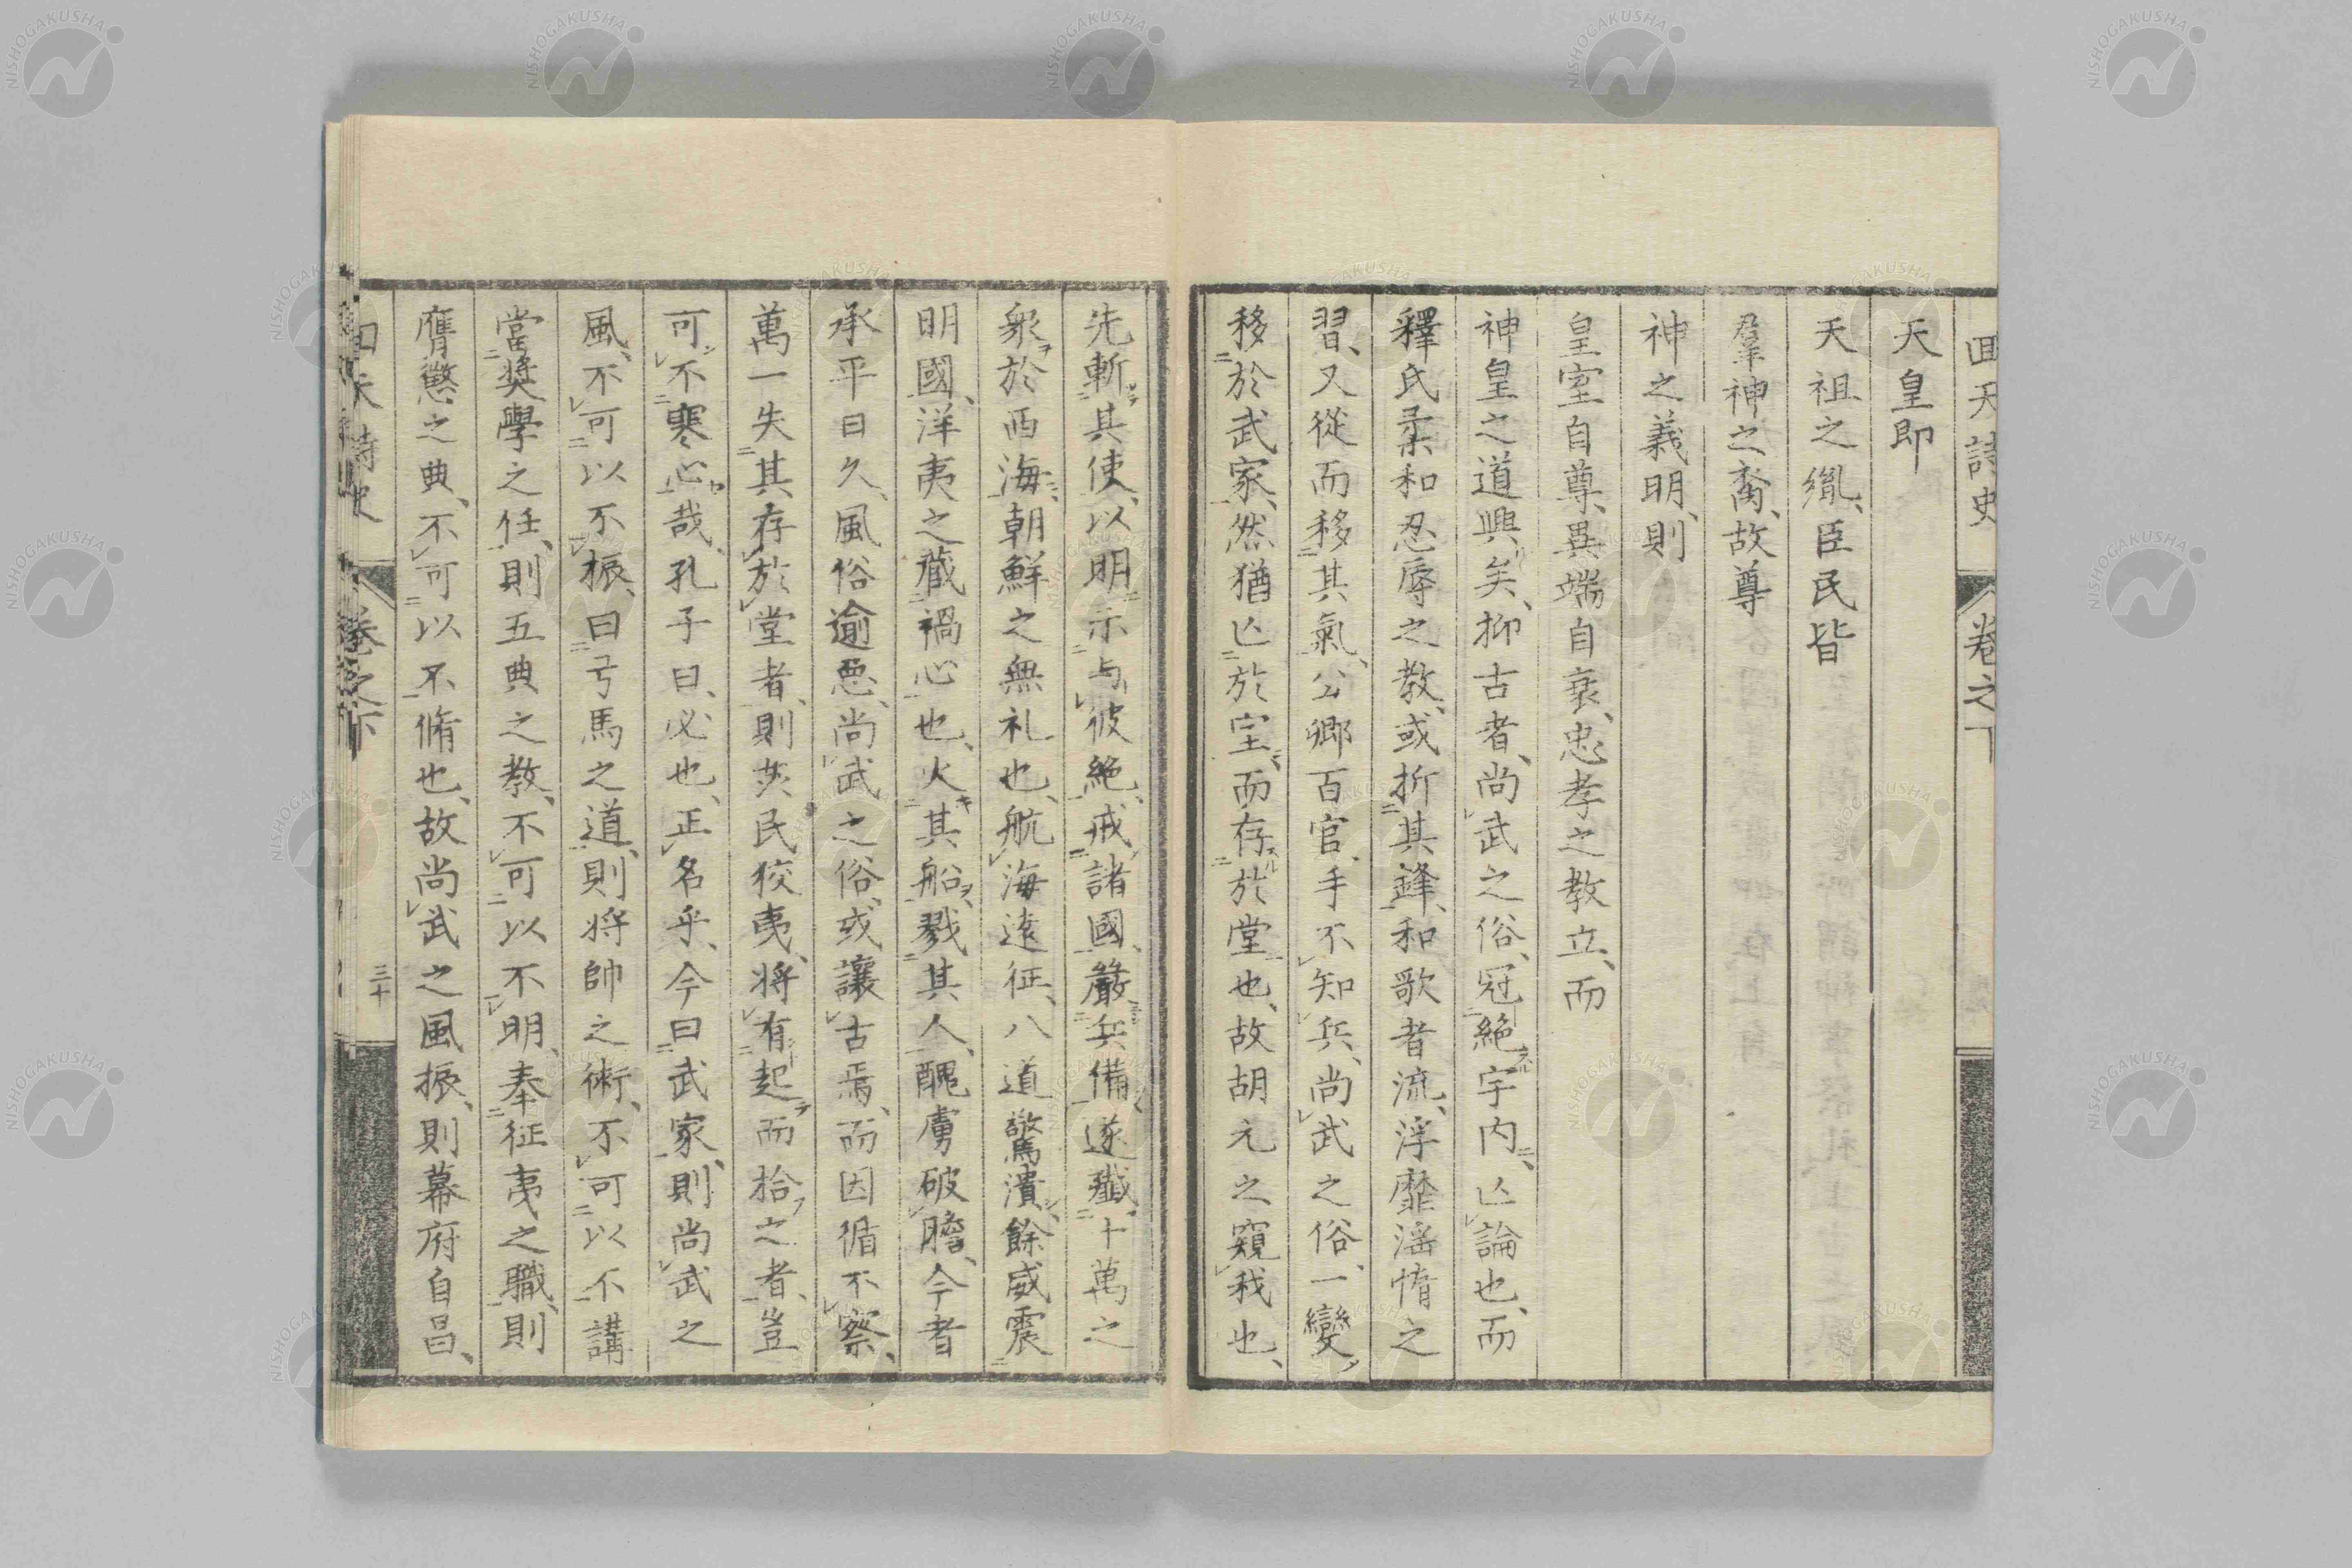 回天詩史 卷之下
天皇即
天祖之胤、臣民皆
羣神之裔、故尊
神之義明、則
皇室自尊、異端自衰、忠孝之教立、而
神皇之道興矣、抑古者、尚武之俗、冠絶宇内、亡論也、而
釋氏柔和忍辱之教、或折其鋒、和歌者流、浮靡滛惰之
習、又從而移其氣、公卿百官、手不知兵、尚武之俗、一變
移於武家、然猶亡於室、而存於堂也、故胡元之窺我也、
先斬其使、以明示与彼絶、戒諸國、嚴兵備、遂殲十萬之
衆於西海、朝鮮之無礼也、航海遠征、八道驚潰、餘威震
明國、洋夷之藏禍心也、火其船、戮其人、醜虜破膽、今者
承平日久、風俗逾悪、尚武之俗、或讓古焉、而因循不察、
萬一失其存於堂者、則莠民狡夷、將有起而拾之者、豈
可不寒心哉、孔子曰、必也、正名乎、今曰武家、則尚武之
風、不可以不振、曰弓馬之道、則将帥之術、不可以不講
當奬學之任、則五典之教、不可以不明、奉征夷之職、則
膺懲之典、不可以不脩也、故尚武之風振、則幕府自昌、
三十
NISHOGAKUSHA